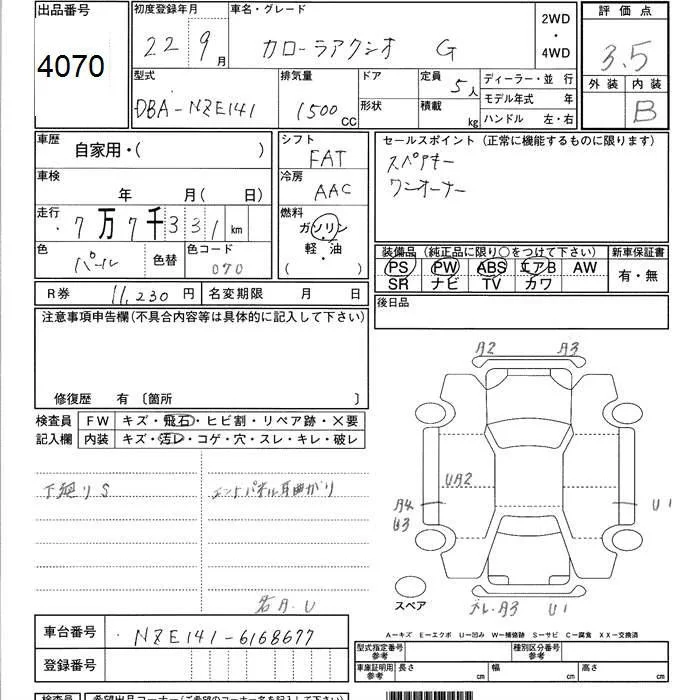 出品番号 初度登録年月 車名・グレード 2WD・4WD 評価点
4070 22 9月 カローラアクシオ G 3.5
外装 内装
B
型式 排気量 ドア 定員 5人 ディーラー・並 行
DBA-NZE141 1500cc 形状 積載 kg モデル年式 年
ハンドル 左・右
車歴 自家用・( )
シフト FAT
セールスポイント (正常に機能するものに限ります)
スペアキー
ワンオーナー
車検 年 月( 日)
冷房 AAC
走行 7万7千331km
燃料 ガソリン・軽・油 ( )
色 パール 色替 色コード 070
装備品 (純正品に限り○をつけて下さい) 新車保証書
PS PW ABS エアB AW 有・無
SR ナビ TV カワ
R券 11,230円 名変期限 月 日
後日品
注意事項申告欄(不具合内容等は具体的に記入して下さい)
修復歴 有 〔箇所 〕
検査員記入欄
FW キズ・飛石・ヒビ割・リペア跡・×要
内装 キズ・汚レ・コゲ・穴・スレ・キレ・破レ
下廻りS
エンドパネル耳曲がり
A2 A3
UA2
A4
U3
U1
スペア
A3 U1
A-キズ E-エクボ U-凹み W-補修跡 S-サビ C-腐食 XX-交換済
車台番号 NZE141-6168677
登録番号
型式指定番号 参考 種別区分番号 参考
車庫証明用 参考 長さ cm 幅 cm 高さ cm
検査員 希望出品コーナー(ご希望のコーナー名を記入下さい)